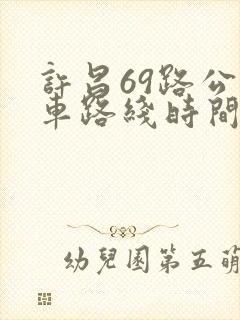 許昌69路公
車路綫時間
幼兒園第五萌